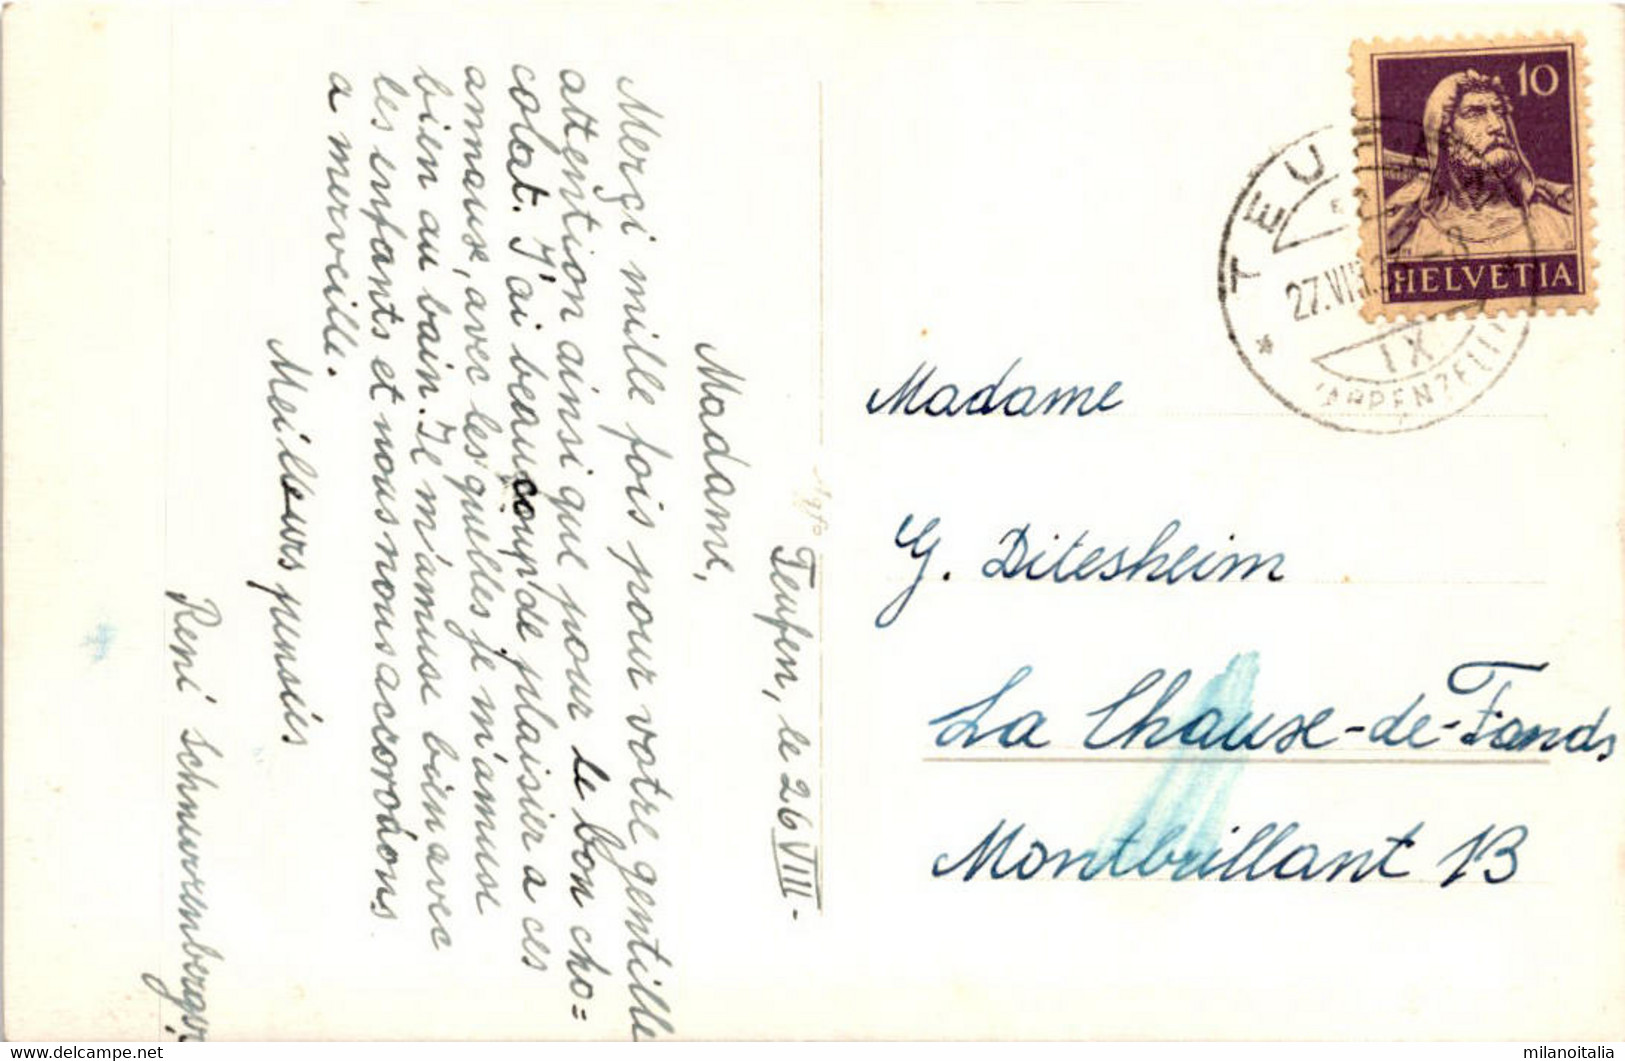 Teufen, le 26 VIII-
Madame,
Merçi mille fois pour votre gentille
attention ainsi que pour le bon cho=
colat. J'ai beaucoup de plaisier a ces
ammaux, avec les quelles je m'amuse
bien au bain. Il m'amuse bien avec
les enfants et nous nous accordons
a merveille.
Meilleurs pensées
René Schnurrenberger
10
HELVETIA
TEUFEN
27.VIII.
IX
(APPENZELL)
Madame
G. Ditesheim
La Chaux-de-Fonds
Montbrillant 13
https://www.delcampe.net
milanoitalia